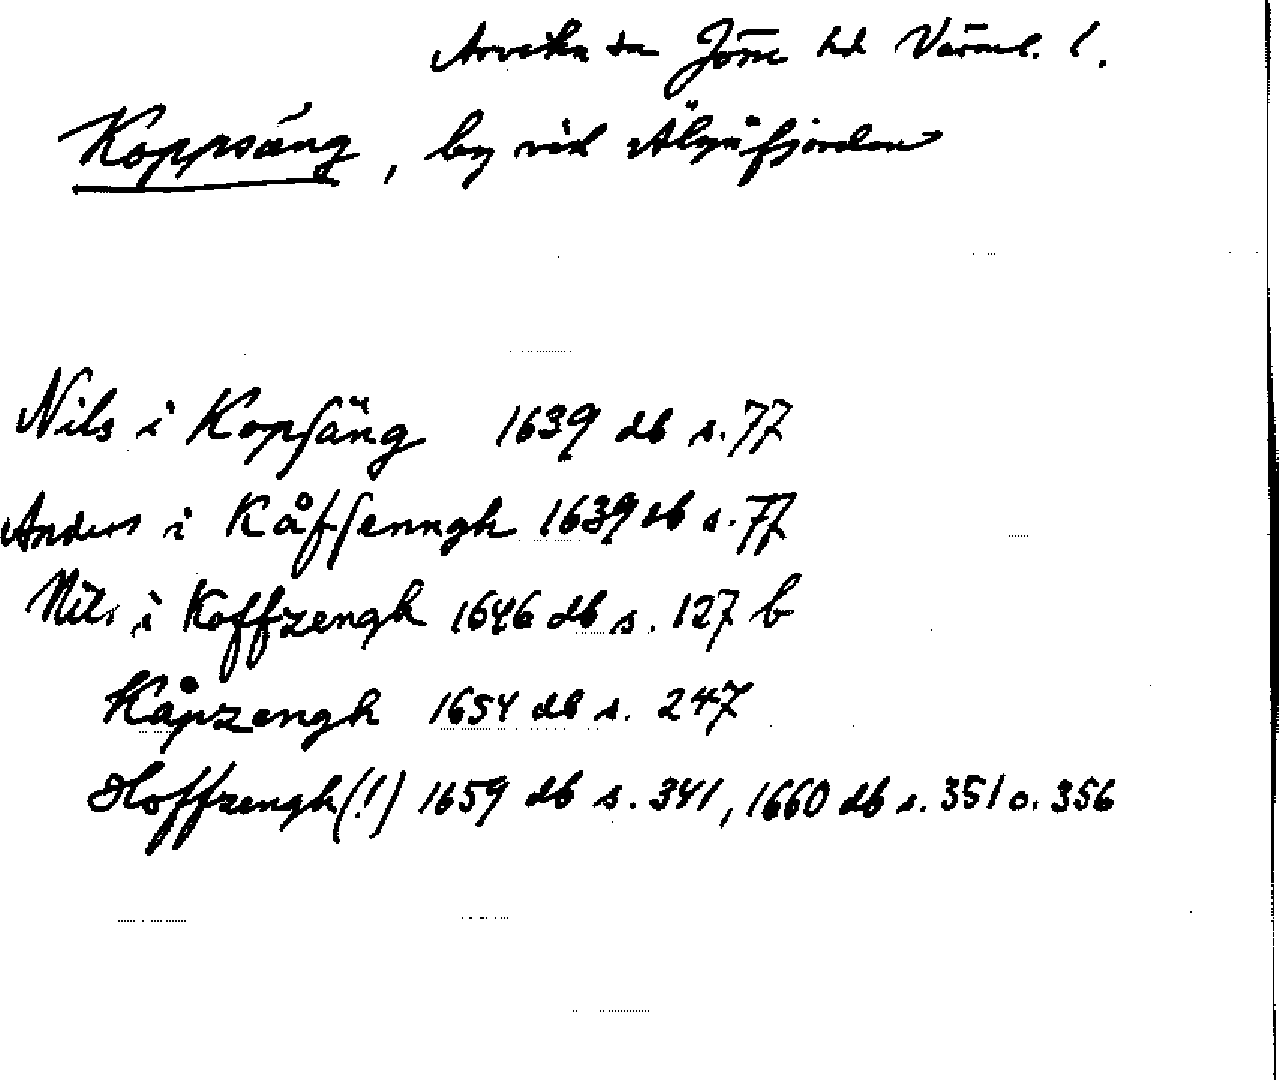 Arvika sn Jösse hd Värml. l.
Koppsäng, by vid Älgåfjorden
Nils i Kopsäng 1639 db s. 77
Anders i Kåfsenngh 1639 db s. 77
Nils i Koffzengh 1646 db s. 127 b
Kåpzengh 1654 db s. 247
Hoffzengh (!) 1659 db s. 341, 1660 db s. 351 o. 356